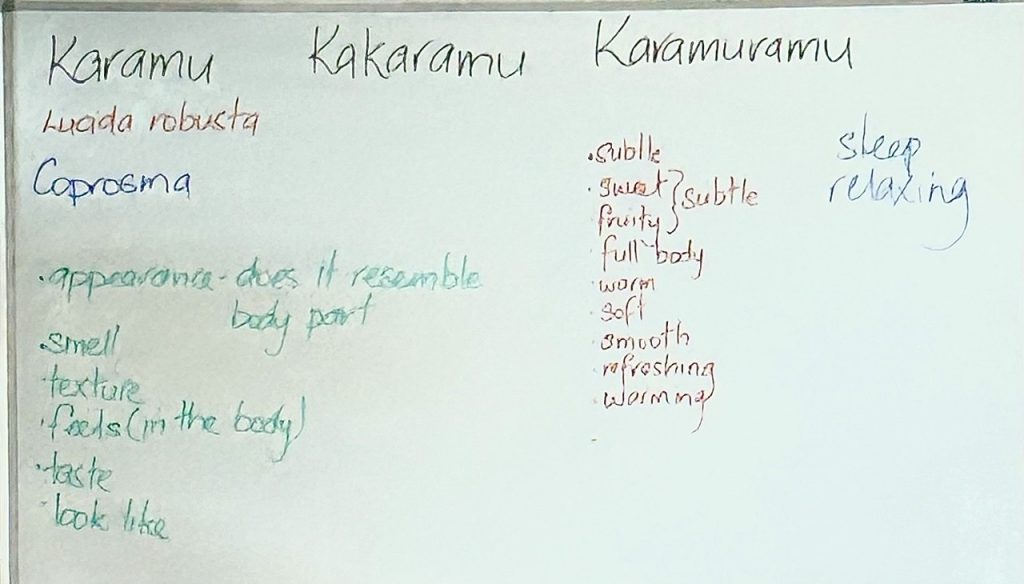 Karamu Kakaramu Karamuramu
Lucida robusta
Coprosma
• appearance - does it resemble
body part
• smell
• texture
• feels (in the body)
• taste
• look like
• subtle
• sweet } subtle
fruity
• full body
• warm
• soft
• smooth
• refreshing
• warming
sleep
relaxing